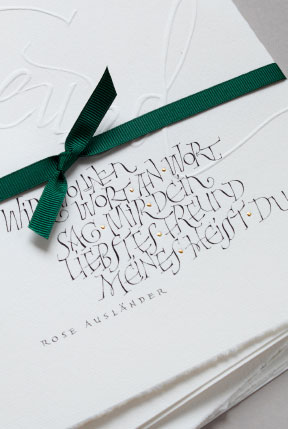 eund
WIR WOHNEN
WORT·AN·WORT
SAG·MIR·DEIN
LIEBSTES·FREUND
MEINES·HEISST·DU
ROSE AUSLÄNDER